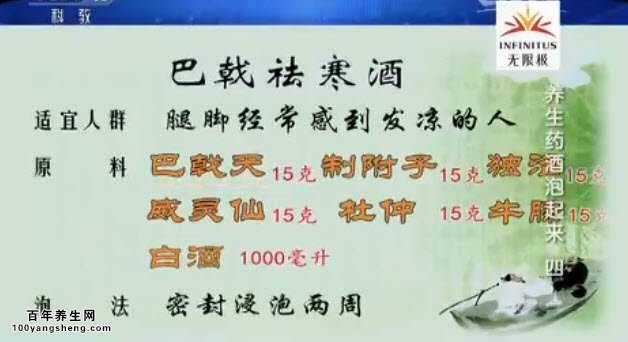 科教
INFINITUS
无限极
巴戟祛寒酒
适宜人群 腿脚经常感到发凉的人
原料 巴戟天 15克 制附子 15克 独活 15克
威灵仙 15克 杜仲 15克 牛膝 15克
白酒 1000毫升
泡法 密封浸泡两周
养生药酒泡起来 四
百年养生网
100yangsheng.com